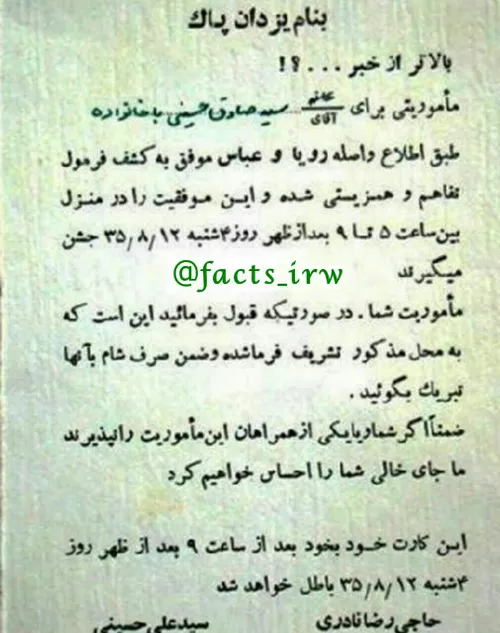 بنام یزدان پاک
بالاتر از خبر . . . ؟!
مأموریتی برای خانم/آقای سید صادق حسینی با خانواده
طبق اطلاع واصله رویا و عباس موفق به کشف فرمول
تفاهم و همزیستی شده و ایـن مـوفقیت را در منـزل
بین ساعت ۵ تـا ۹ بعدازظهر روز ۴شنبه ۳۵/۸/۱۲ جشن
میگیرند
@facts_irw
مأموریت شما . در صورتیکه قبول بفرمائید این است که
به محل مذکور تشریف فرما شده و ضمن صرف شام بآنها
تبریک بگوئید .
ضمناً اگر شما و یا یکی از همراهان این مأموریت را نپذیرند
ما جای خالی شما را احساس خواهیم کرد
ایـن کارت خـود بخود بعد از ساعت ۹ بعد از ظهر روز
۴شنبه ۳۵/۸/۱۲ باطل خواهد شد
حاجی رضا نادری سید علی حسینی